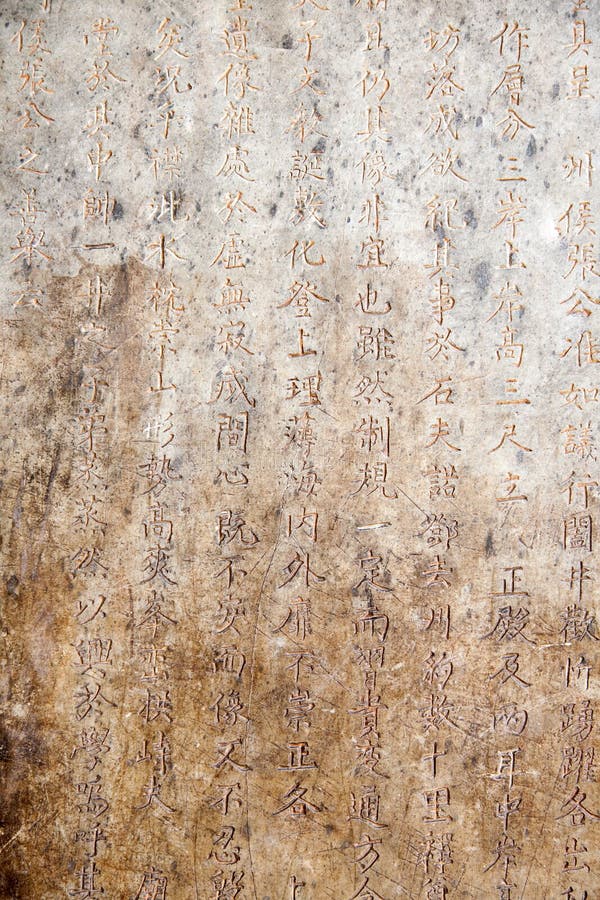 具呈 州侯張公准如議行闔井歡忻踴躍各出
作層分三岸上岸高三尺立 正殿及兩耳中岸
坊落成欲紀其事於石夫諾鄧去州約數十里
且仍其像非宜也雖然制規一定而習貴变通方今
天子文教誕敷化登上理薄海内外靡不崇正各 上
遺像雜處於虛無寂滅間心既不安而像又不忍毀
矣况乎襟 水枕崇山形势高爽峯巒拱峙夫 廟
堂於其中 一井 子弟蒸蒸然以興於學嗚呼其
侯張公之善舉云